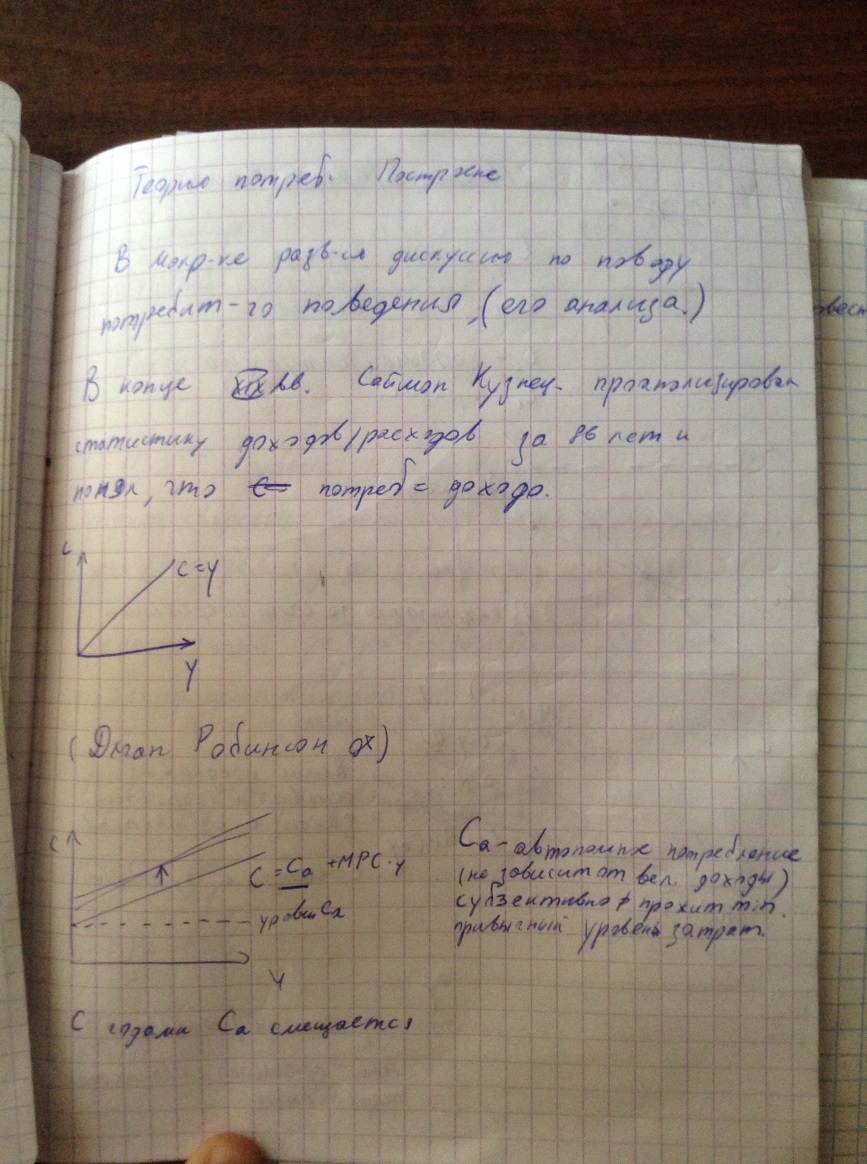 Теорию потреб. Построение
В макр-ке разв-ся дискуссию по поводу
потребит-го поведения, (его анализа.)
В конце XIX вв. Саймон Кузнец. проанализировал
статистику доходов/расходов за 86 лет и
понял, что потреб = дохода.
C
C=Y
Y
(Джоан Робинсон)
C
C = Ca + MPC·y
уровень Ca
Y
Ca - автономное потребление
(не зависит от вел. доходы)
субъективно ≠ прожит min.
привычный уровень затрат.
С годами Ca смещается